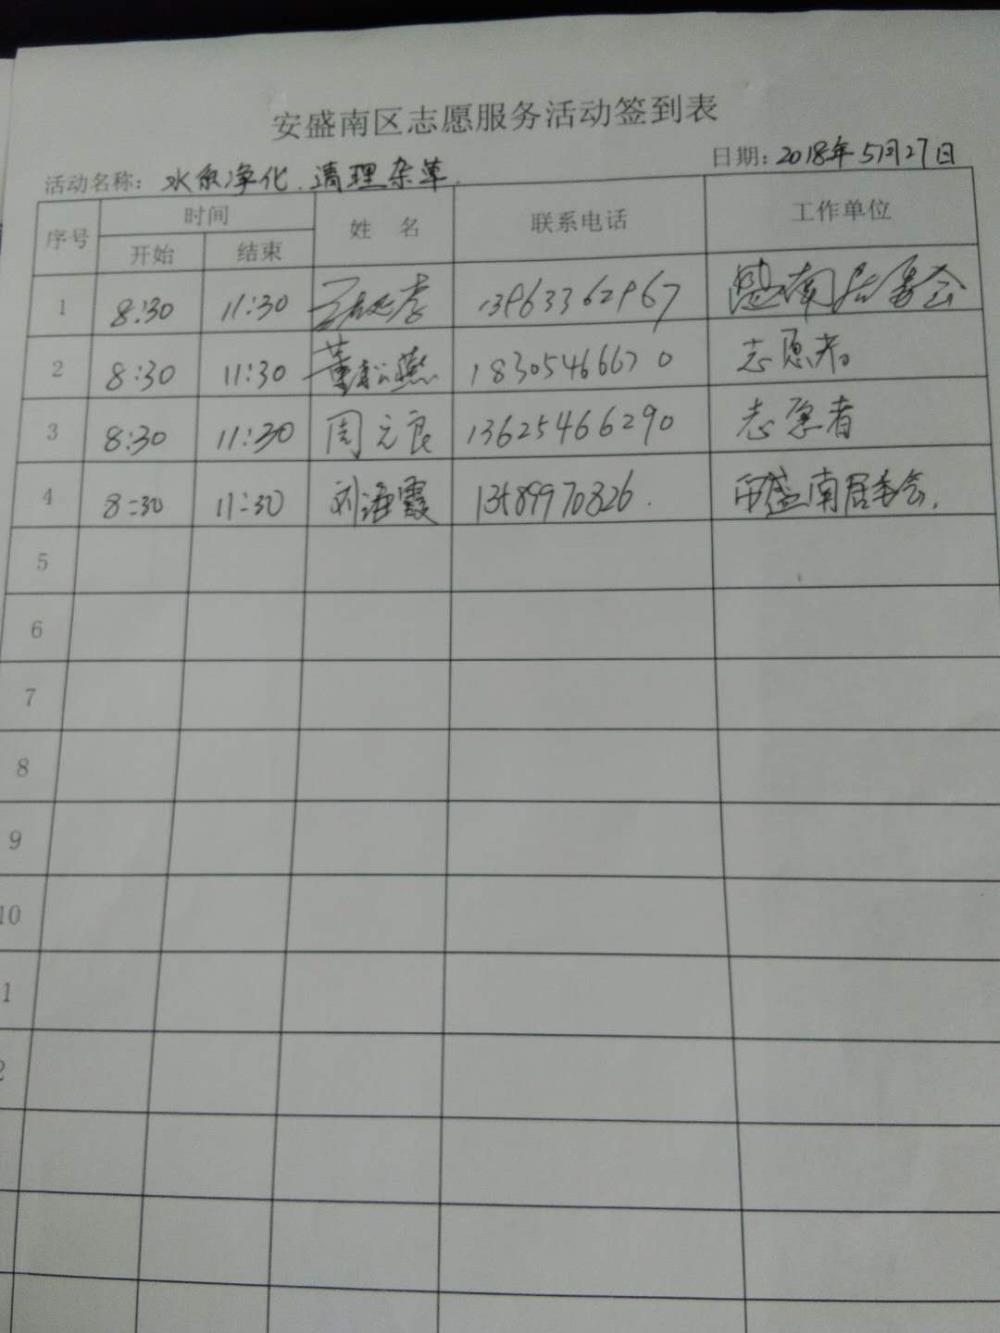 安盛南区志愿服务活动签到表
日期：2018年5月27日
活动名称：水系净化、清理杂草.
序号 时间 姓 名 联系电话 工作单位
开始 结束
1 8:30 11:30 13963362967 盛南居委会
2 8:30 11:30 董松燕 18305466670 志愿者
3 8:30 11:30 周元良 13625466290 志愿者
4 8:30 11:30 刘海霞 13589970826. 安盛南居委会.
5
6
7
8
9
10
1
2